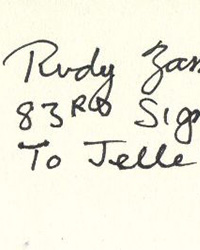 Rudy Zan
83RD Sign
To Jelle